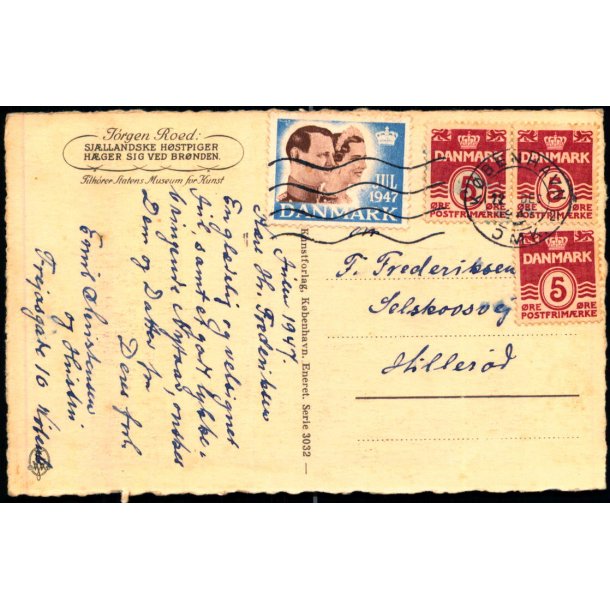 Jörgen Roed:
SJÆLLANDSKE HØSTPIGER
HÆGER SIG VED BRØNDEN.
Tilhører Statens Museum for Kunst
JUL
1947
DANMARK
DANMARK
5
ØRE ØRE
POSTFRIMÆRKE
DANMARK
5
ØRE ØRE
POSTFRIMÆRKE
DANMARK
5
ØRE ØRE
POSTFRIMÆRKE
KØBENHAVN
OMK
Kunstforlag, København. Eneret. Serie 3032
Julen 1947.
Hr. Frederiksen
En glædelig og velsignet
Jul, samt et godt lykke-
bringende Nytaar, ønskes
Dem og Datter fra
Deres forb.
Emil Christensen
og Hustru
Frejasgade 10
T. Frederiksen
Selskovsvej
Hillerød